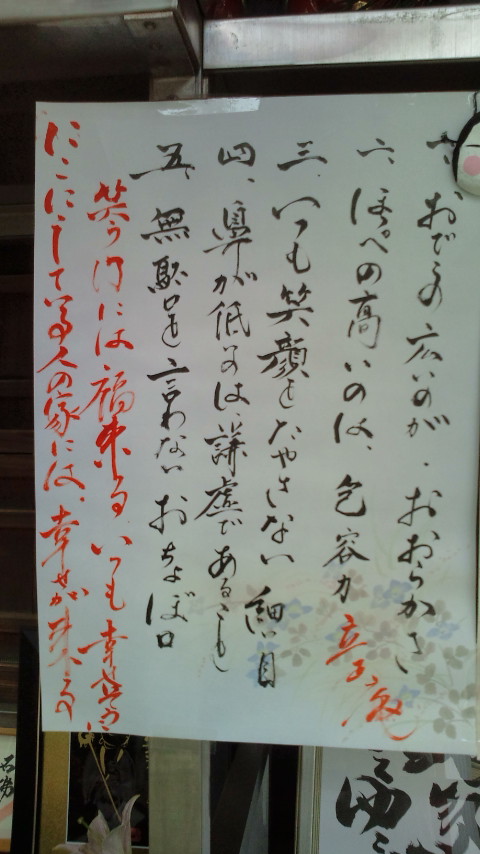 おでこの広いのが、おおらかさ
六、ほっぺの高いのは、包容力
三、いつも笑顔をたやさない細い目
四、鼻が低いのは、謙虚であること
五、無駄口を言わないおちょぼ口
笑う門には福来る いつも幸せそうに
にこにこして居る人の家には、幸せが来る